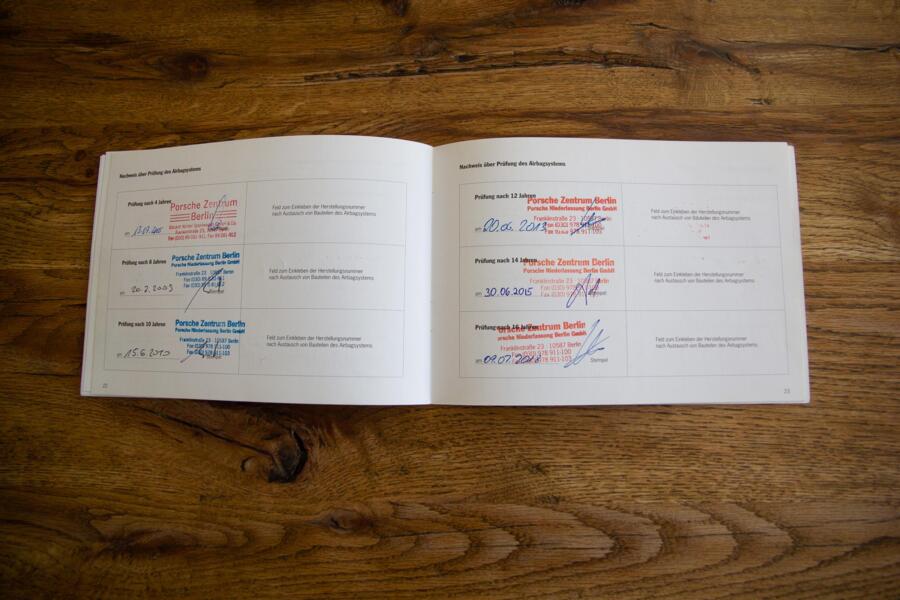 Nachweis über Prüfung des Airbagsystems
Prüfung nach 4 Jahren
Porsche Zentrum
Berlin
am
Feld zum Einkleben der Herstellungsnummer
nach Austausch von Bauteilen des Airbagsystems
Prüfung nach 8 Jahren
Porsche Zentrum Berlin
Porsche Niederlassung Berlin GmbH
Franklinstraße 23 · 10587 Berlin
am 20.2.2009
Feld zum Einkleben der Herstellungsnummer
nach Austausch von Bauteilen des Airbagsystems
Prüfung nach 10 Jahren
Porsche Zentrum Berlin
Porsche Niederlassung Berlin GmbH
Franklinstraße 23 · 10587 Berlin
am 15.6.2010
Stempel
Feld zum Einkleben der Herstellungsnummer
nach Austausch von Bauteilen des Airbagsystems
22
Nachweis über Prüfung des Airbagsystems
Prüfung nach 12 Jahren
Porsche Zentrum Berlin
Porsche Niederlassung Berlin GmbH
Franklinstraße 23 · 10587 Berlin
am
Feld zum Einkleben der Herstellungsnummer
nach Austausch von Bauteilen des Airbagsystems
Prüfung nach 14 Jahren
Porsche Zentrum Berlin
Porsche Niederlassung Berlin GmbH
Franklinstraße 23 · 10587 Berlin
am 30.06.2015
Stempel
Feld zum Einkleben der Herstellungsnummer
nach Austausch von Bauteilen des Airbagsystems
Prüfung nach 16 Jahren
Porsche Zentrum Berlin
Porsche Niederlassung Berlin GmbH
Franklinstraße 23 · 10587 Berlin
Fon (030) 978 911-100
Fax (030) 978 911-103
am
Stempel
Feld zum Einkleben der Herstellungsnummer
nach Austausch von Bauteilen des Airbagsystems
23